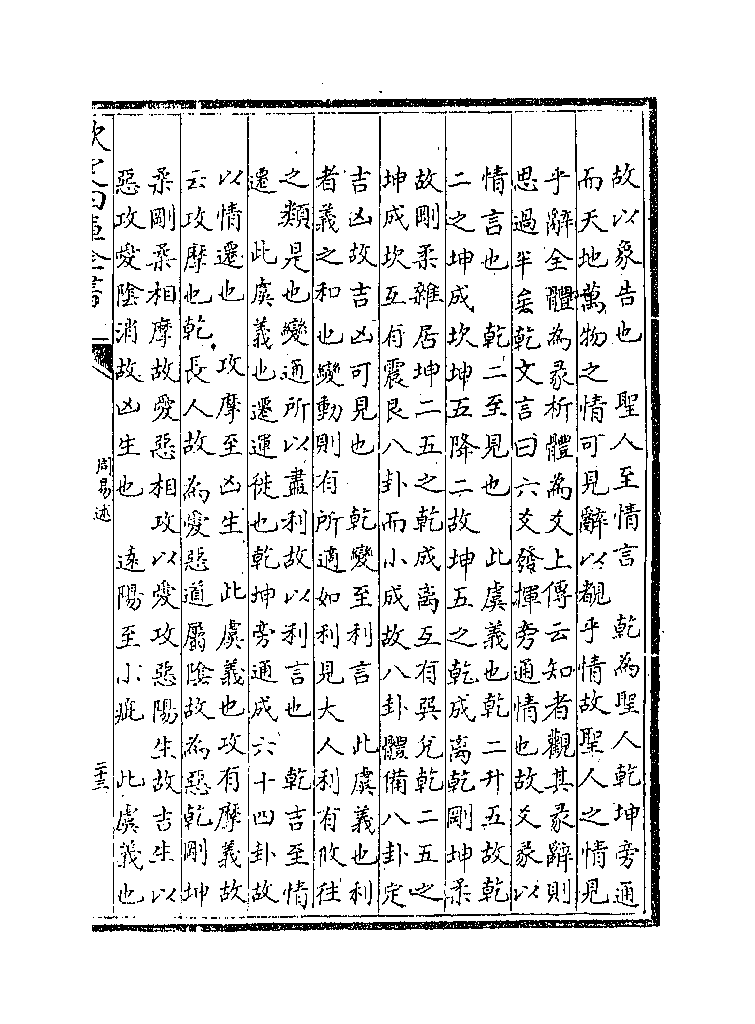 故以象告也　聖人至情言　乾為聖人乾坤旁通
而天地萬物之情可見辭以覩乎情故聖人之情見
乎辭全體為彖析體為爻上傳云知者觀其彖辭則
思過半矣乾文言曰六爻發揮旁通情也故爻彖以
情言也　乾二至見也　此虞義也乾二升五故乾
二之坤成坎坤五降二故坤五之乾成离乾剛坤柔
故剛柔雜居坤二五之乾成离互有巽兌乾二五之
坤成坎互有震艮八卦而小成故八卦體備八卦定
吉凶故吉凶可見也　乾變至利言　此虞義也利
者義之和也變動則有所適如利見大人利有攸往
之類是也變通所以盡利故以利言也　乾吉至情
遷　此虞義也遷運徙也乾坤旁通成六十四卦故
以情遷也　攻摩至凶生　此虞義也攻有摩義故
云攻摩也乾長人故為愛惡道屬陰故為惡乾剛坤
柔剛柔相摩故愛惡相攻以愛攻惡陽生故吉生以
惡攻愛陰消故凶生也　遠陽至小疵　此虞義也
欽定四庫全書
周易述
二十三